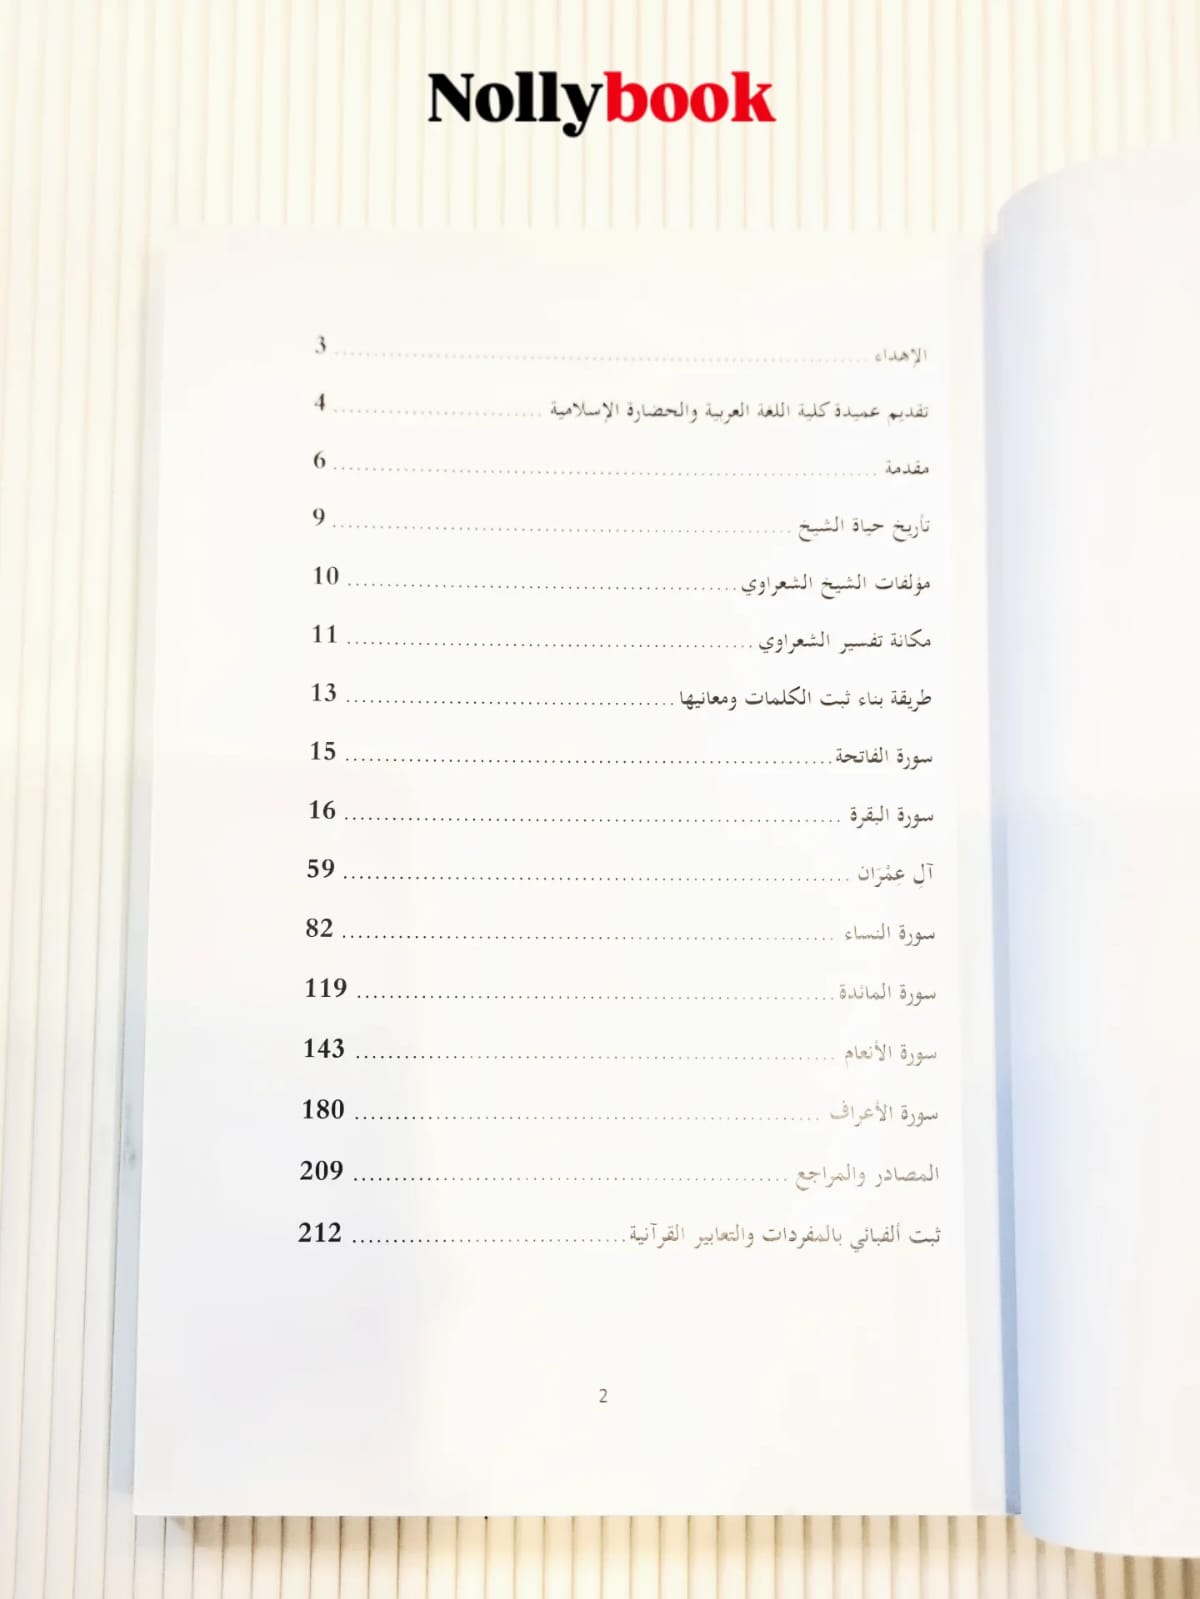 Nollybook
الإهداء ........................................ 3
تقديم عميدة كلية اللغة العربية والحضارة الإسلامية ........................................ 4
مقدمة ........................................ 6
تأريخ حياة الشيخ ........................................ 9
مؤلفات الشيخ الشعراوي ........................................ 10
مكانة تفسير الشعراوي ........................................ 11
طريقة بناء ثبت الكلمات ومعانيها ........................................ 13
سورة الفاتحة ........................................ 15
سورة البقرة ........................................ 16
آلِ عِمْرَان ........................................ 59
سورة النساء ........................................ 82
سورة المائدة ........................................ 119
سورة الأنعام ........................................ 143
سورة الأعراف ........................................ 180
المصادر والمراجع ........................................ 209
ثبت ألفبائي بالمفردات والتعابير القرآنية ........................................ 212
2